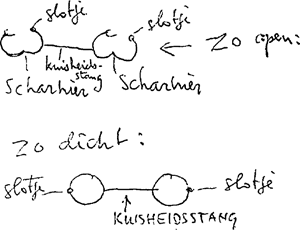 slotje slotje
kuisheids-
stang
Scharnier Scharnier
← zo open:
zo dicht:
slotje slotje
KUISHEIDSSTANG